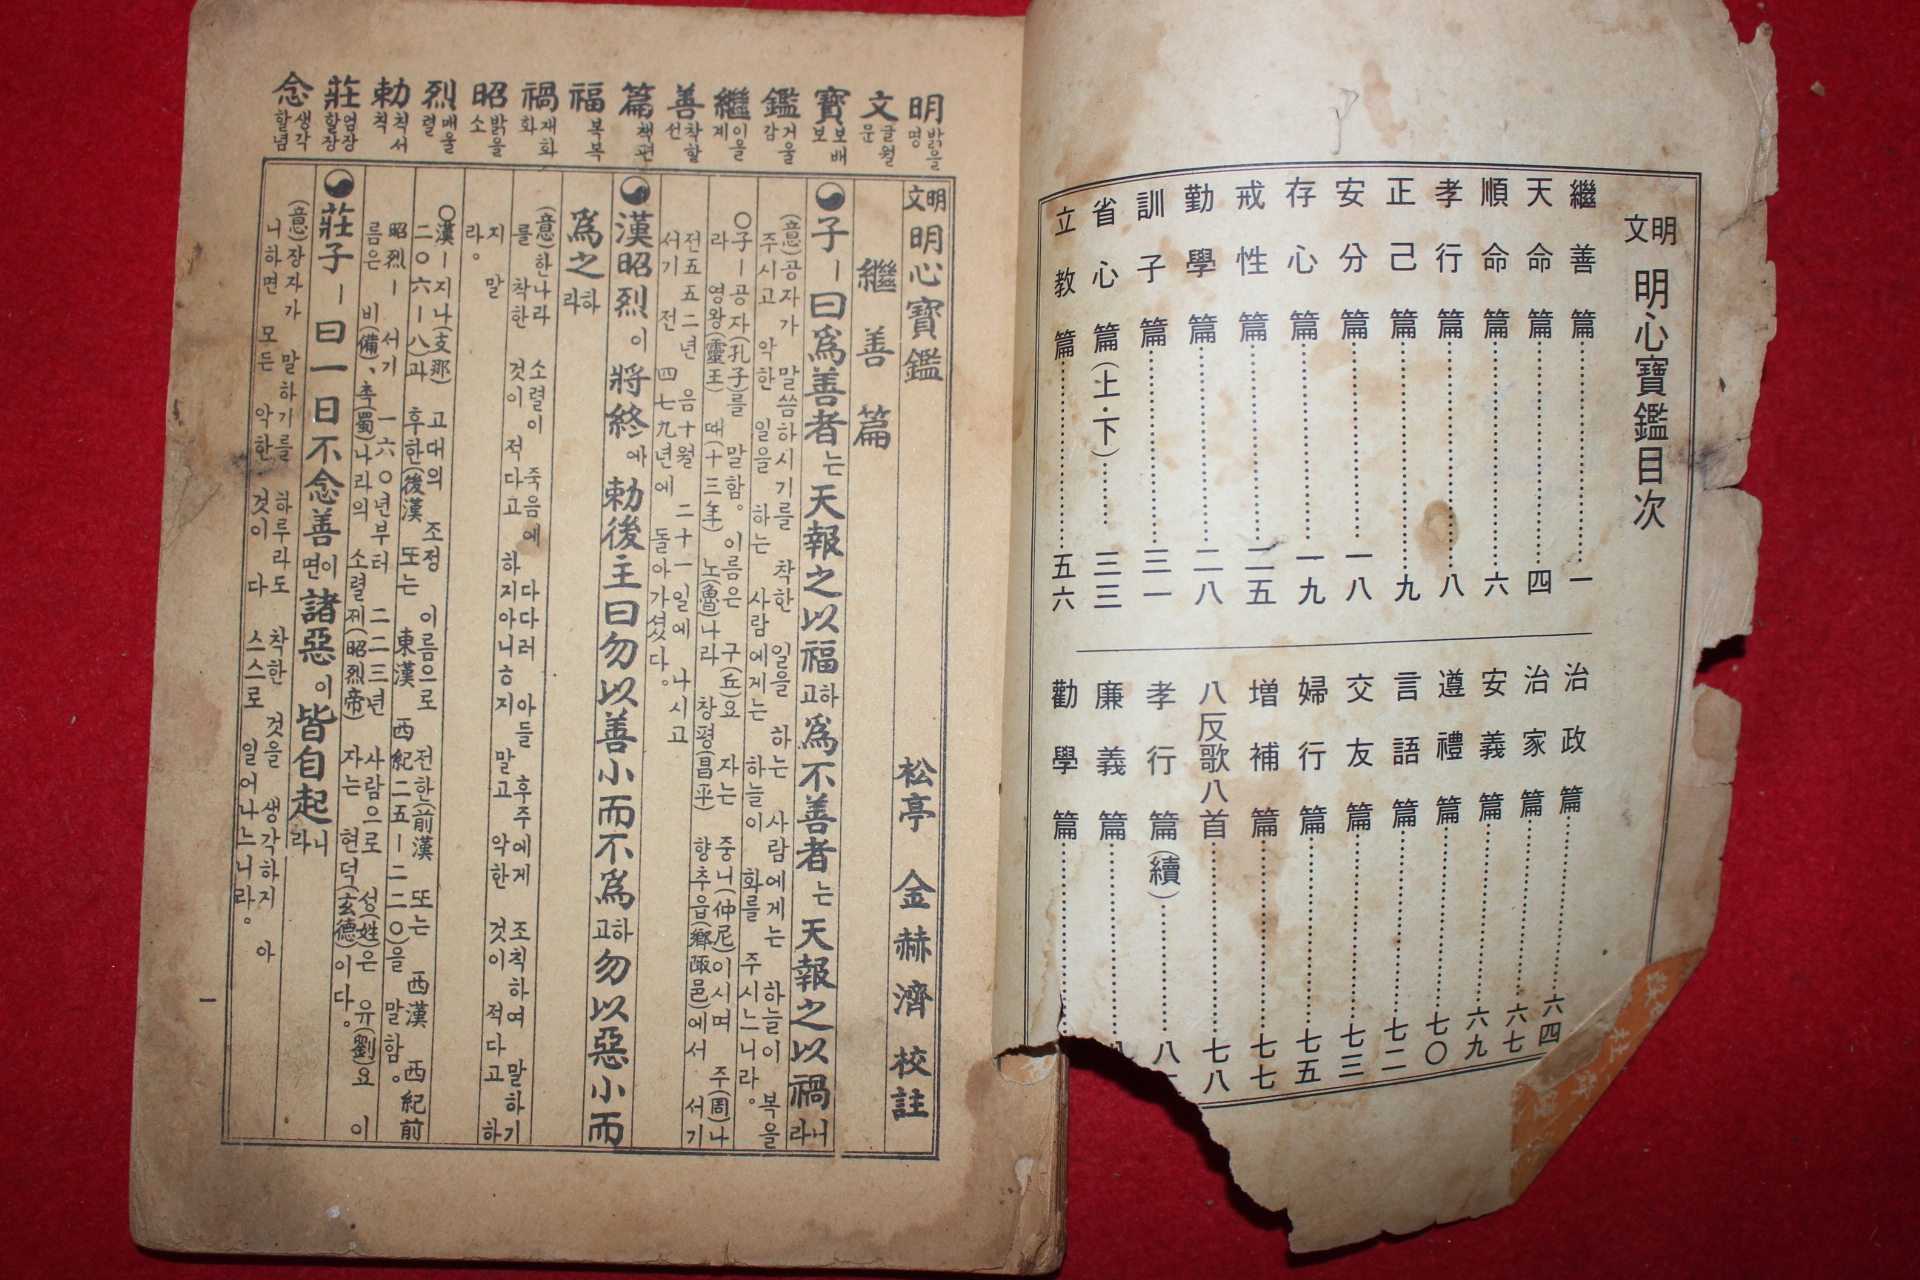 明文 明心寶鑑目次
繼善篇……一
天命篇……四
順命篇……六
孝行篇……八
正己篇……九
安分篇……一八
存心篇……一九
戒性篇……二五
勤學篇……二八
訓子篇……三一
省心篇(上·下)……三三
立教篇……五六
治政篇……六四
治家篇……六七
安義篇……六九
遵禮篇……七〇
言語篇……七二
交友篇……七三
婦行篇……七五
增補篇……七七
八反歌八首……七八
孝行篇(續)……八
廉義篇……八
勸學篇……
明 밝을 명
文 글월 문
寶 보배 보
鑑 거울 감
繼 이을 계
善 착할 선
篇 책편
福 복복
禍 재화 화
昭 밝을 소
烈 매울 렬
勅 칙서 칙
莊 엄장할 장
念 생각할 념
明文 明心寶鑑 松亭 金赫濟 校註
繼善篇
子ー曰爲善者는天報之以福하고爲不善者는天報之以禍니라
(意)공자가 말씀하시기를 착한 일을 하는 사람에게는 하늘이 복을
주시고 악한 일을 하는 사람에게는 하늘이 화를 주시느니라。
〇子ー공자(孔子)를 말함。이름은 구(丘)요 자는 중니(仲尼)이시며 주(周)나
라 영왕(靈王) 때(十三年) 노(魯)나라 창평(昌平) 향추읍(鄕陬邑)에서 서기
전五五二년 음十월 二十一일에 나시고
서기 전 四七九년에 돌아가셨다。
漢昭烈이將終에勅後主曰勿以善小而不爲하고勿以惡小而
爲之하라
(意)한나라 소렬이 죽음에 다다러 아들 후주에게 조칙하여 말하기
를 착한 것이 적다고 하지아니ㅎ지 말고 악한 것이 적다고 하
지 말
라。
〇漢ー지나(支那) 고대의 조정 이름으로 전한(前漢 또는 西漢 西紀前
二〇六ー八)과 후한(後漢 또는 東漢 西紀二五ー二二〇)을 말함。
昭烈ー서기 一六〇년부터 二二三년 사람으로 성(姓)은 유(劉)요 이
름은 비(備)、촉(蜀)나라의 소렬제(昭烈帝) 자는 현덕(玄德)이다。
莊子ー曰一日不念善이면諸惡이皆自起니라
(意)장자가 말하기를 하루라도 착한 것을 생각하지 아
니하면 모든 악한 것이 다 스스로 일어나느니라。
一